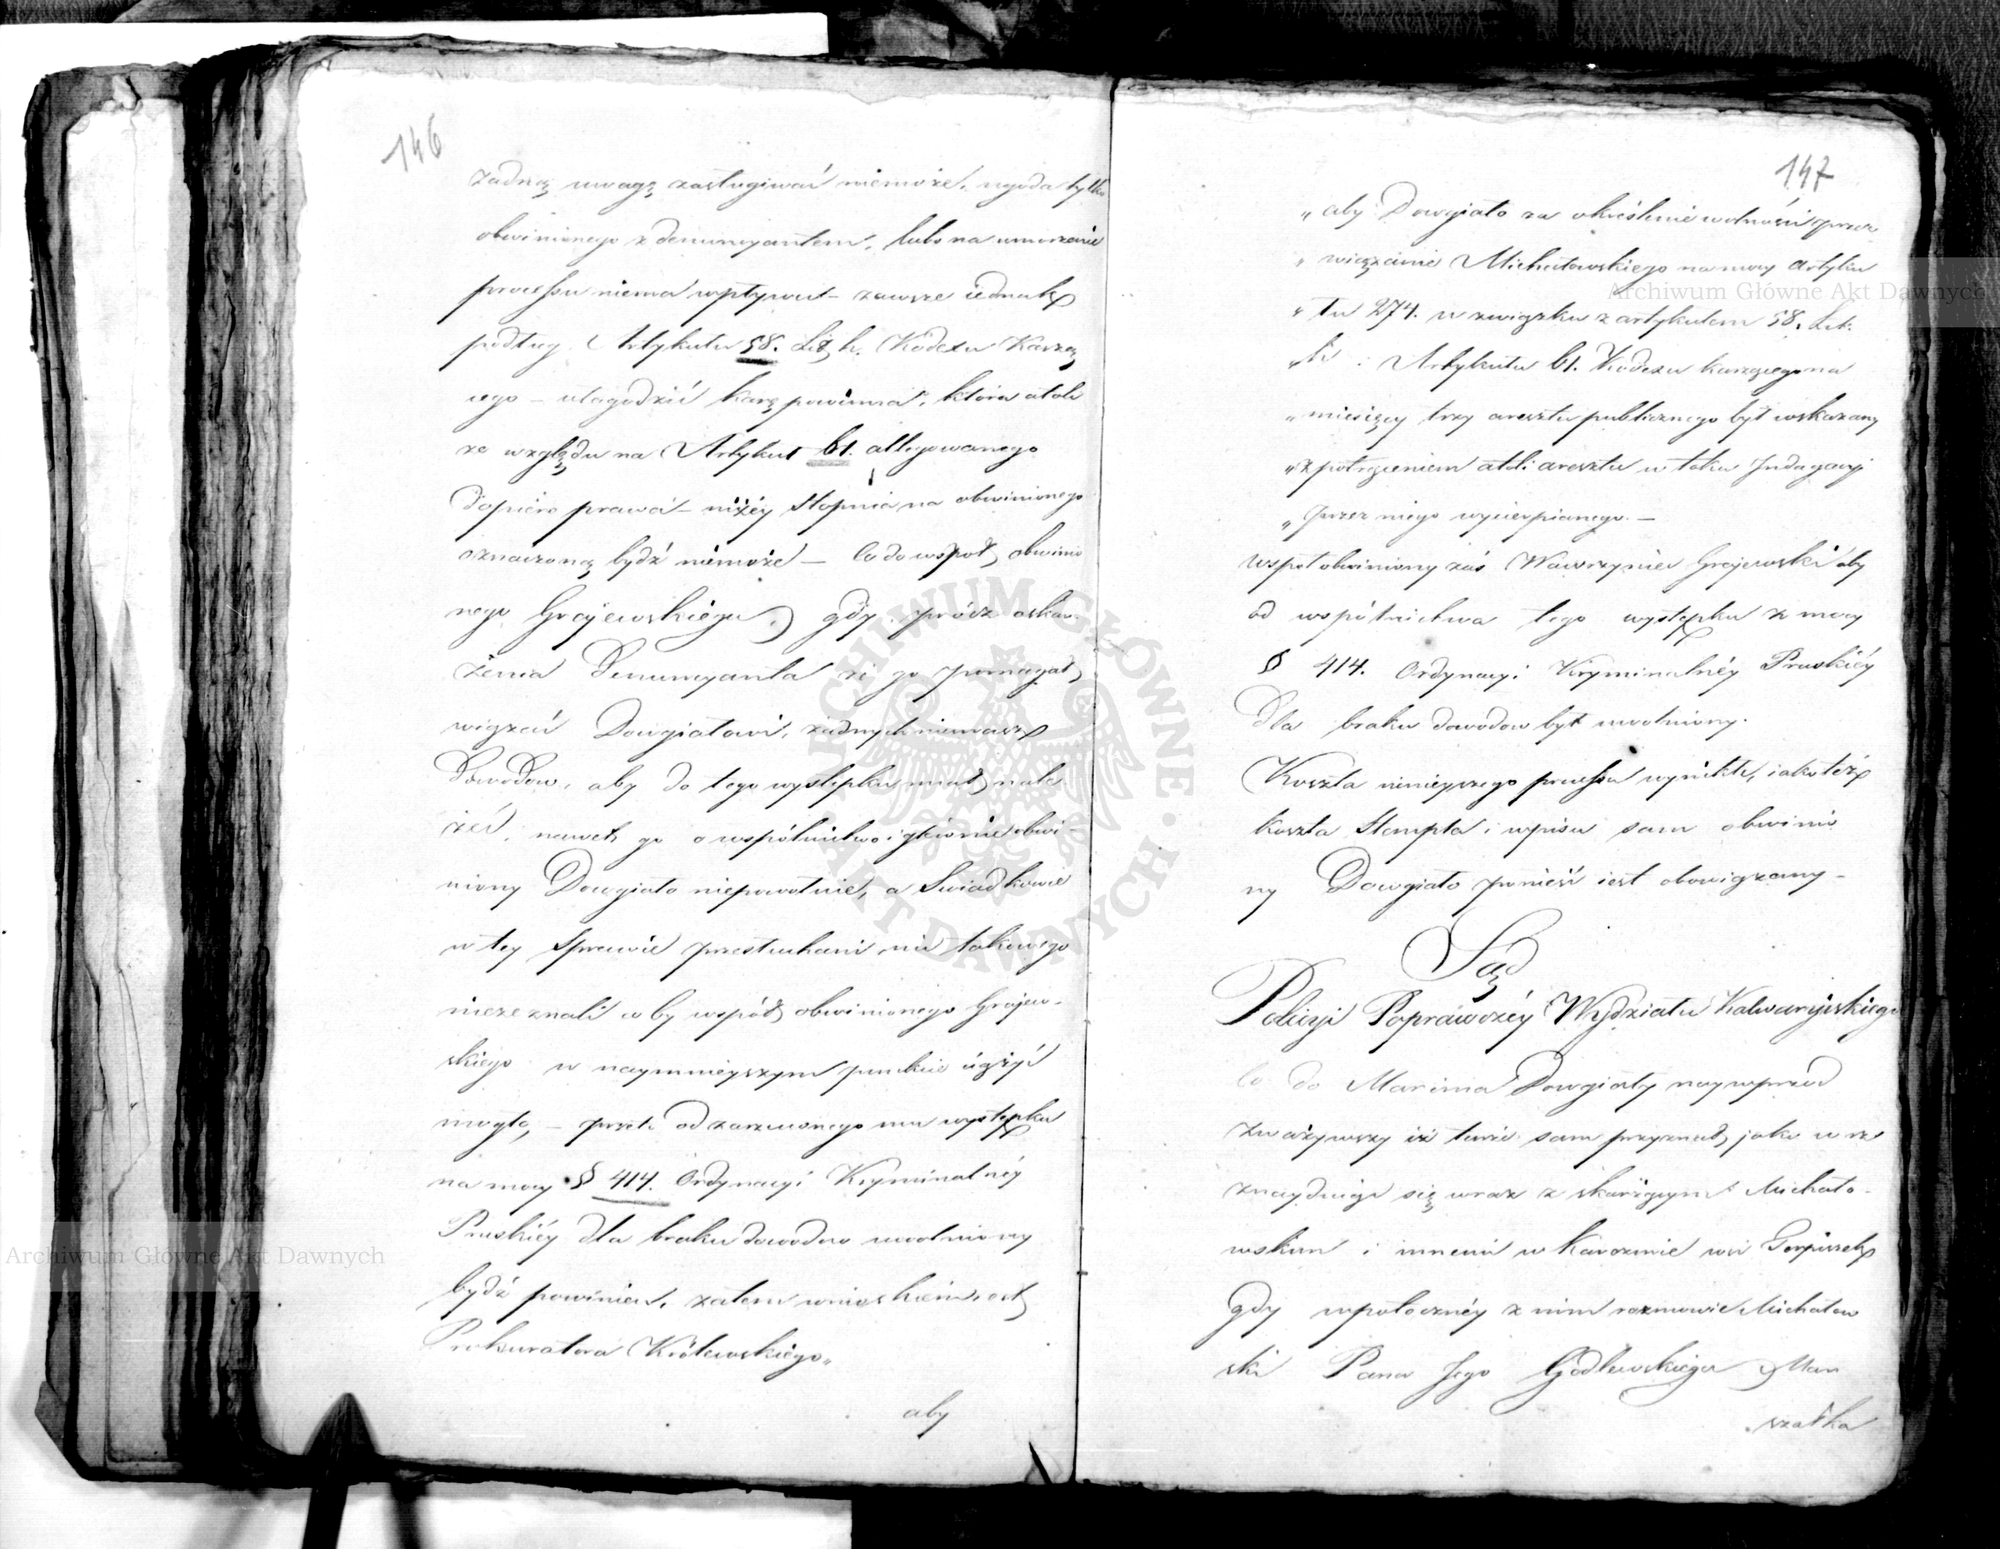 146
żadną uwagę zasługiwać niemoże, ugoda tylko
obwinionego z denuncyantem, lubo na umorzenie
processu niema wpływu – zawsze iednak
podług Artykułu 58. Lit h. Kodexu Karzą
cego – ułagodzić karę powinna, która atoli
ze względu na Artykuł 61. allegowanego
dopiero prawa – niżey stopnia na obwinionego
oznaczoną bydź niemoże – Co do współ obwinio
nego Grajewskiego, gdy prócz oskar-
żenia Denuncyanta że go pomagał
wiązać Dowgiałowi, żadnych niemasz
Dowodow, aby do tego występku miał nale
żeć, nawet go o wspólnictwo i głównie obwi-
niony Dowgiało niepowołuie, a Swiadkowie
w tey Sprawie przesłuchani nic takowego
niezeznali coby współ obwinionego Grajew-
skiego w naymnieyszym punkcie
mogło, – przeto od zarzuconego mu występku
na mocy § 414. Ordynacyi Kryminalnéy
Pruskiéy dla braku dowodow uwolniony
bydź powinien, zatem wnioskiem iest
Prokuratora Królewskiego„
aby
147
„ aby Dowgiało za okréslenie wolności przez
„ wiązanie Michałowskiego na mocy Artyku
„ łu 274. w związku z artykułem 58. Lit.
„ h. Artykułu 61. Kodexu karzącego na
„ miesięcy trzy aresztu publicznego był wskazany
„ z potrąceniem atoli aresztu w toku Indagacyi
„ przez niego wycierpianego. –
współobwiniony zaś Wawrzyniec Grajewski aby
od wspólnictwa tego występku z mocy
§ 414. Ordynacyi Kryminalnéy Pruskiéy
dla braku dowodow był uwolniony.
Koszta ninieyszego processu wynikłe, iako też
koszta Stempla i wpisu sam obwinio
ny Dowgiało ponieść iest obowiązany –
Sąd
Policyi Poprawczéy Wydziału Kalwaryiskiego
Co do Marcina Dowgiały naywprzod
zważywszy iż tenże sam przyznał, jako w
znayduiąc się wraz z skarżącym Michało-
wskim i innemi w Karczmie wsi
gdy wpotoczney z nim rozmowie Michałow
ski Pana Jego Godlewskiego Mar
szałka
Archiwum Główne Akt Dawnych
Archiwum Główne Akt Dawnych
ARCHIWUM GŁÓWNE AKT DAWNYCH